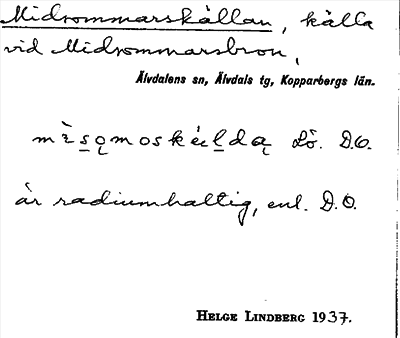 Midsommarskällan, källa
vid Midsommarsbron,
Älvdalens sn, Älvdals tg, Kopparbergs län.
Lö. D.O.
är radiumhaltig, enl. D.O.
HELGE LINDBERG 1937.